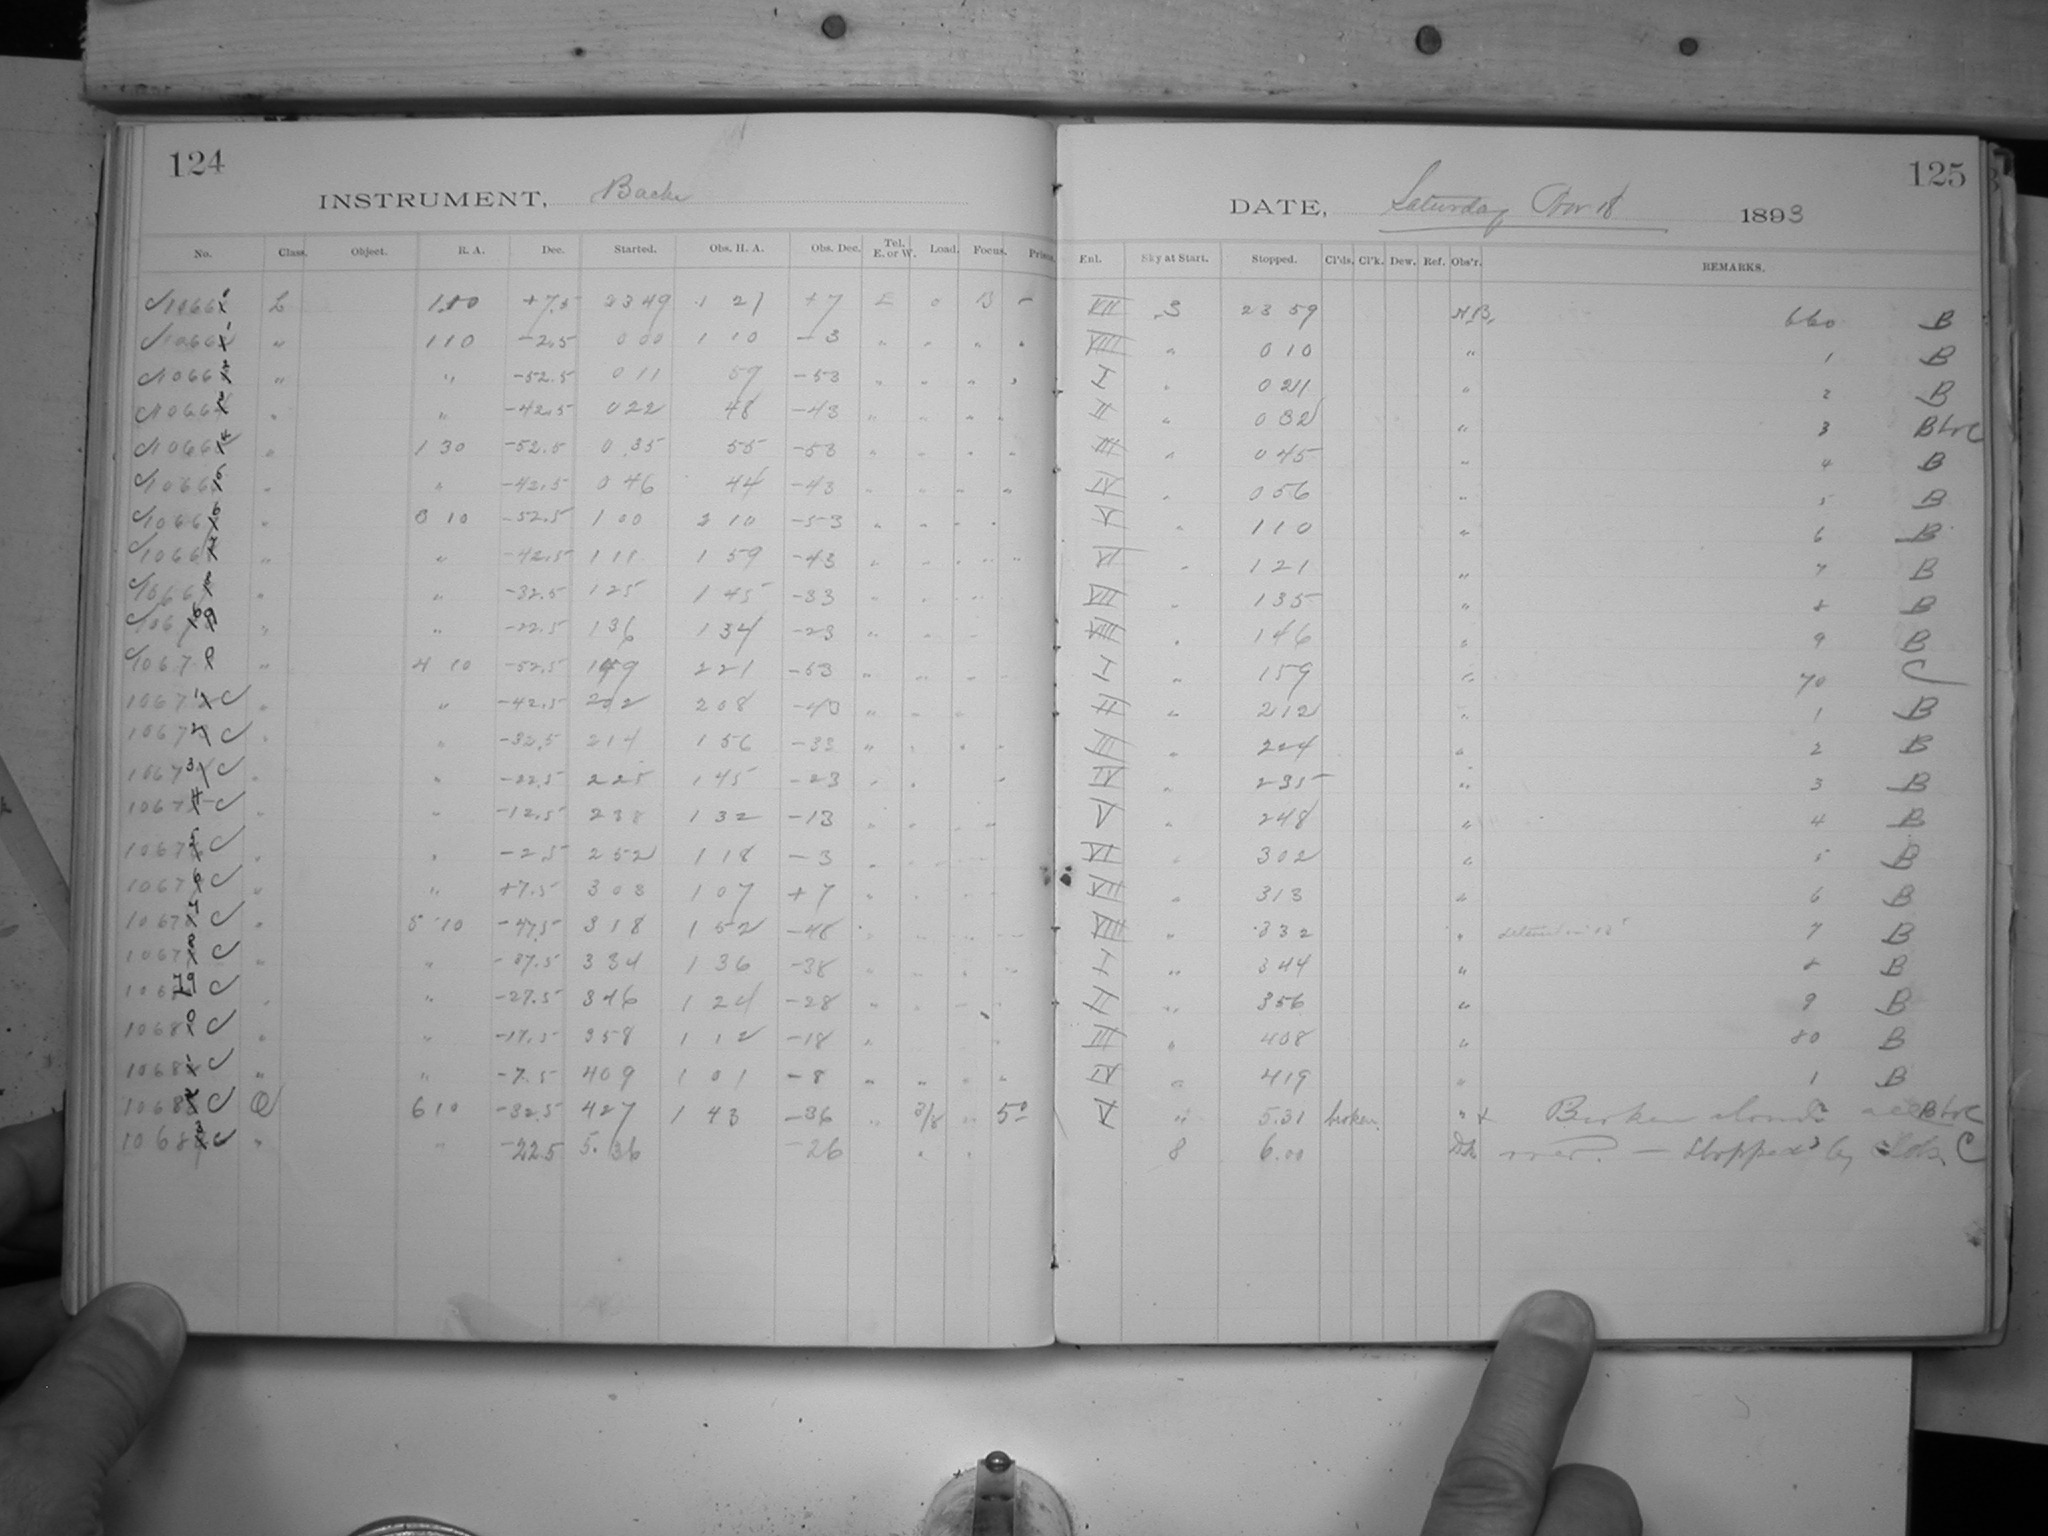 124
INSTRUMENT, Bache
No. Class. Object. R. A. Dec. Started. Obs. H. A. Obs. Dec. Tel. E. or W. Load. Focus. Prism.
125
DATE, Saturday Nov 18 1893
Enl. Sky at Start. Stopped. Cl'ds. Cl'k. Dew. Ref. Obs'r. REMARKS.
10660 L 1 10 +7.5 23 49 1 21 +7 E 0 B – VII 3 23 59 660 B
10661 " 110 -2.5 0 00 1 10 -3 " " " " VIII " 0 10 " 1 B
10662 " " -52.5 0 11 59 -53 " " " " I " 0 21 " 2 B
10663 " " -42.5 0 22 48 -43 " " " " II " 0 32 " 3 B
10664 " 1 30 -52.5 0 35 55 -53 " " " " III " 0 45 " 4 B
10665 " " -42.5 0 46 44 -43 " " " " IV " 0 56 " 5 B
10666 " 3 10 -52.5 1 00 2 10 -53 " " " " V " 1 10 " 6 B
10667 " " -42.5 1 11 1 59 -43 " " " " VI " 1 21 " 7 B
10668 " " -32.5 1 25 1 45 -33 " " " VII " 1 35 " 8 B
10669 " " -22.5 1 36 1 34 -23 " " " VIII " 1 46 " 9 B
10670 " 4 10 -52.5 1 49 2 21 -53 " " " " I " 1 59 " 70 C
10671 C " " -42.5 2 02 2 08 -43 " " " II " 2 12 " 1 B
10672 C " " -32.5 2 14 1 56 -33 " " " " III " 2 24 " 2 B
10673 C " " -22.5 2 25 1 45 -23 " " " IV " 2 35 " 3 B
10674 C " " -12.5 2 38 1 32 -13 " " " " V " 2 48 " 4 B
10675 C " " -2.5 2 52 1 18 -3 " " " VI " 3 02 " 5 B
10676 C " " +7.5 3 03 1 07 +7 " " " VII " 3 13 " 6 B
10677 C " 5 10 -47.5 3 18 1 52 -48 " " " VIII " 3 32 " 7 B
10678 C " " -37.5 3 34 1 36 -38 " " " I " 3 44 " 8 B
10679 C " " -27.5 3 46 1 24 -28 " " " II " 3 56 " 9 B
10680 C " " -17.5 3 58 1 12 -18 " " III " 4 08 " 80 B
10681 C " " -7.5 4 09 1 01 -8 " " " " IV " 4 19 " 1 B
10682 C 6 10 -32.5 4 27 1 43 -36 " 3/8 " 50 V " 5.31 broken. " x Broken clouds 2
10683 C " " -22.5 5.36 -26 " " 8 6.00 over. — Stopped 3 by C